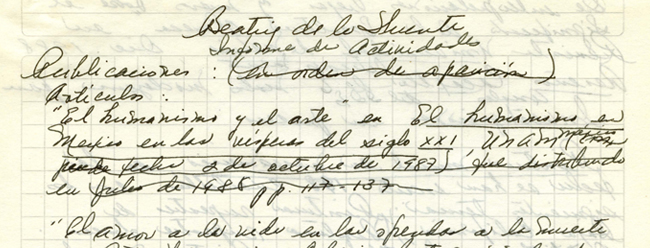 Beatriz de la Fuente
Informe de Actividades
Publicaciones : (en orden de aparición)
Artículos :
"El humanismo y el arte" en El humanismo en
México en las vísperas del siglo XXI UNAM México
fecha 2 de octubre de 1987) que distribuido
en Julio de 1988 pp. 117-137
"El amor a la vida en las ofrendas a la muerte